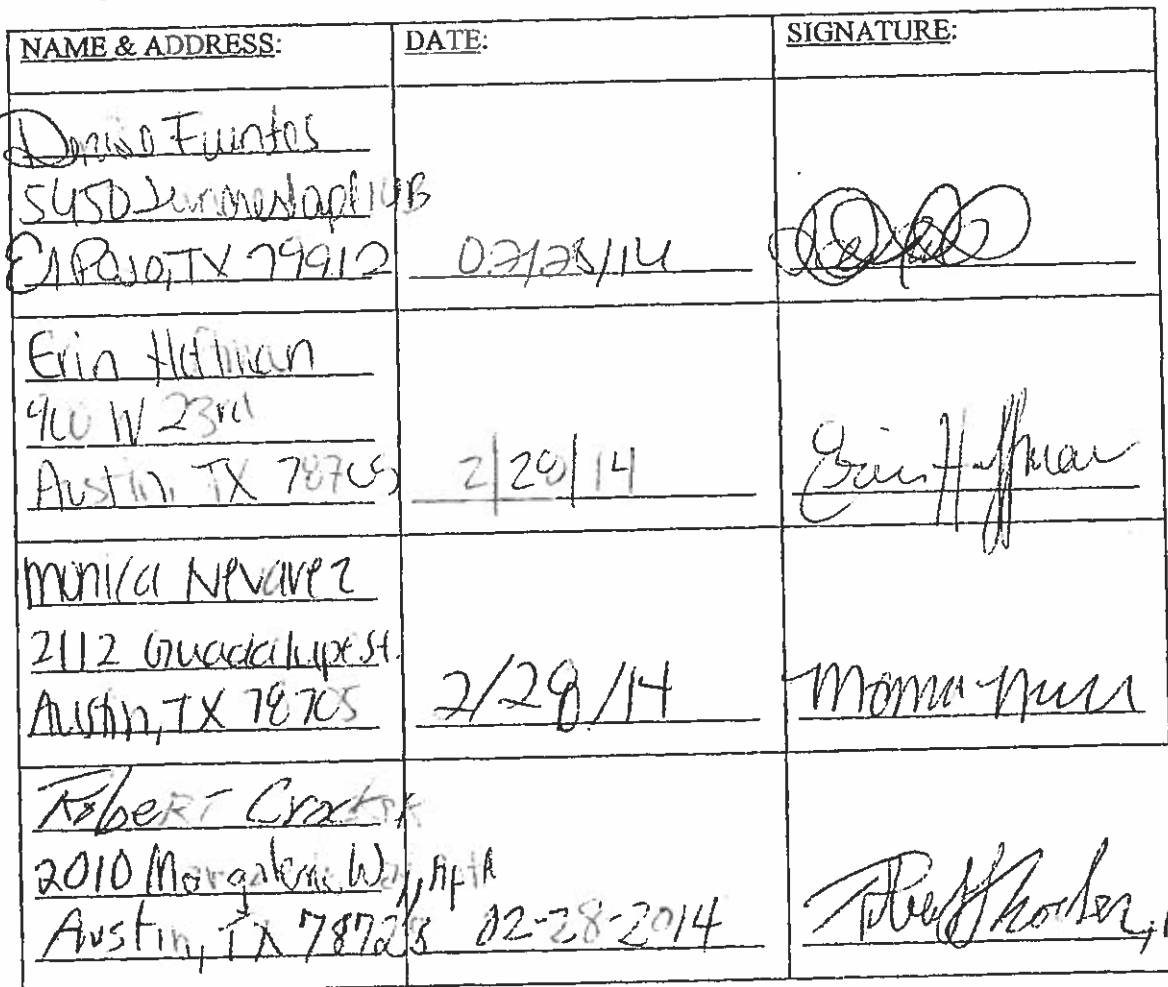 NAME & ADDRESS: DATE: SIGNATURE:
Denise Fuentes
5450 Suncrest apt 14B
El Paso, TX 79912 02/28/14
Erin Hoffman
900 W 23rd
Austin, TX 78705 2/28/14 Erin Hoffman
Monica Nevarez
2112 Guadalupe St.
Austin, TX 78705 2/28/14
Robert Crocker
2010 Way, Apt A
Austin, TX 78723 02-28-2014